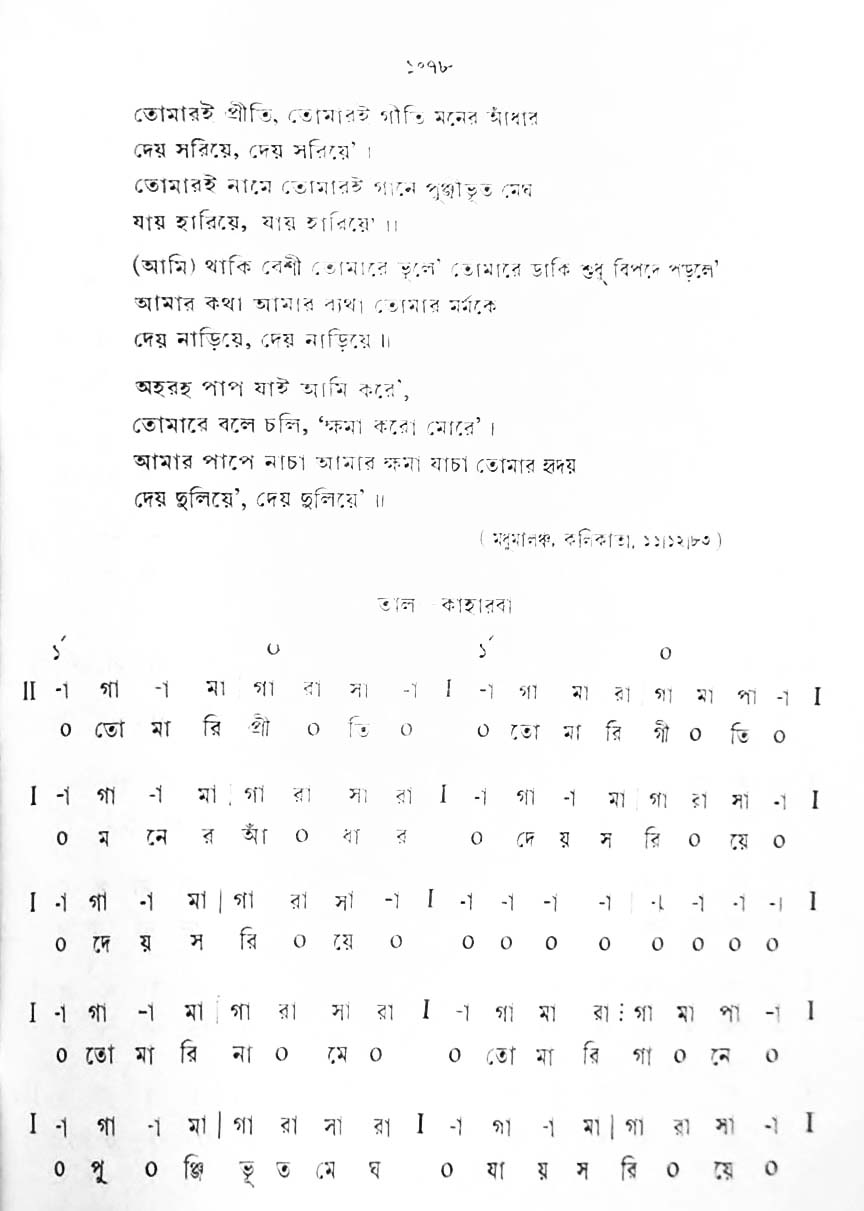 ১০৭৮
তোমারই প্রীতি, তোমারই গীতি মনের আঁধার
দেয় সরিয়ে, দেয় সরিয়ে’ ।
তোমারই নামে তোমারই গানে পুঞ্জীভূত মেঘ
যায় হারিয়ে, যায় হারিয়ে’ ।।
(আমি) থাকি বেশী তোমারে ভুলে’ তোমারে ডাকি শুধু বিপদে পড়লে’
আমার কথা আমার ব্যথা তোমার মর্মকে
দেয় নাড়িয়ে, দেয় নাড়িয়ে ॥
অহরহ পাপ যাই আমি করে’,
তোমারে বলে চলি, ‘ক্ষমা করো মোরে’ ।
আমার পাপে নাচা আমার ক্ষমা যাচা তোমার হৃদয়
দেয় দুলিয়ে’, দেয় দুলিয়ে’ ॥
( মধুমালঞ্চ, কলিকাতা, ১১।১২।৮৩ )
তাল কাহারবা
১´ ০ ১´ ০
II -া গা -া মা গা রা সা -া I -া গা মা রা গা মা পা -া I
০ তো মা রি প্রী ০ তি ০ ০ তো মা রি গী ০ তি ০
I -া গা -া মা | গা রা সা রা I -া গা -া মা | গা রা সা -া I
০ ম নে র আঁ ০ ধা র ০ দে য় স রি ০ য়ে ০
I -া গা -া মা | গা রা সা -া I -া -া -া -া | -া -া -া -া I
০ দে য় স রি ০ য়ে ০ ০ ০ ০ ০ ০ ০ ০ ০
I -া গা -া মা | গা রা সা রা I -া গা মা রা | গা মা পা -া I
০ তো মা রি না ০ মে ০ ০ তো মা রি গা ০ নে ০
I -া গা -া মা | গা রা সা রা I -া গা -া মা | গা রা সা -া I
০ পু ০ ঞ্জি ভূ ত মে ঘ ০ যা য় স রি ০ য়ে ০